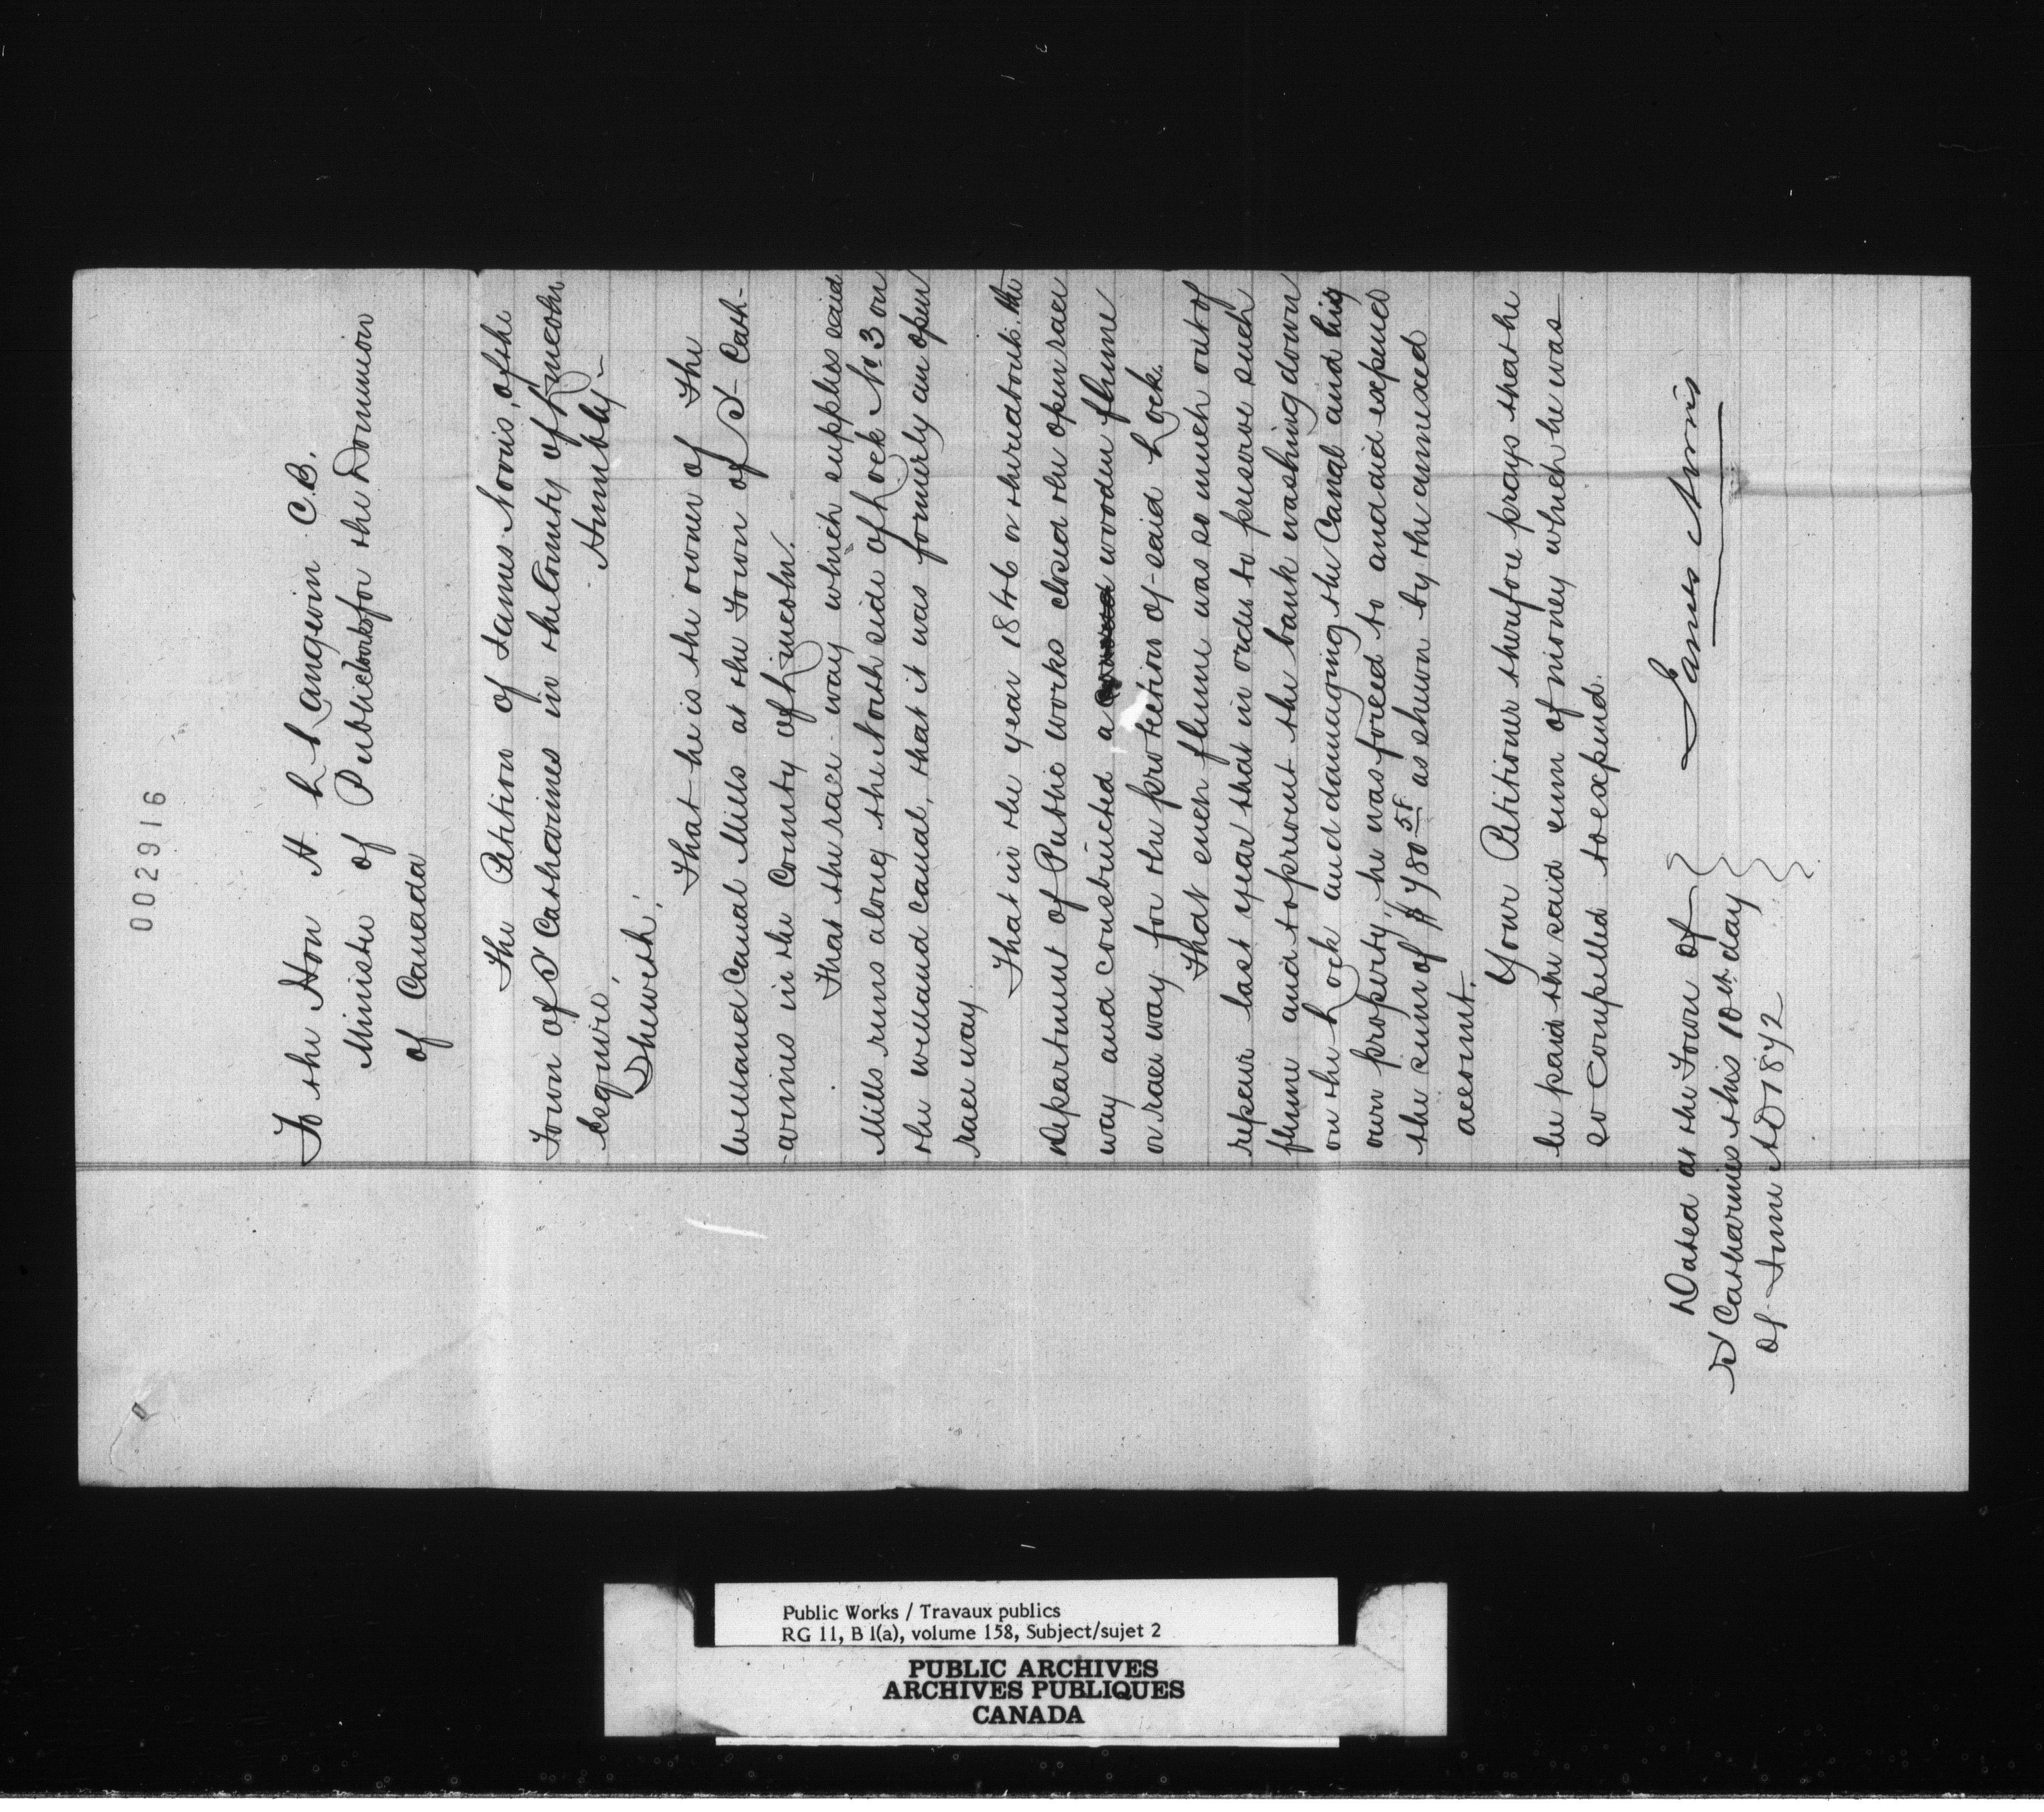 002916
To the Hon H. L Langevin C.B.
Minister of Public Works for the Dominion
of Canada
The Petition of James Norris, of the
Town of St Catharines in the County of Lincoln
Esquire, Humbly
Sheweth:
That he is the owner of The
Welland Canal Mills at the Town of St Cath-
-arines in the County of Lincoln.
That the race-way which supplies said
Mills runs along the North side of Lock No 3 on
the Welland Canal, that it was formerly an open
race way.
That in the year 1846 or thereabouts the
Department of Public Works closed the open race
way and constructed a wooden flume
or race way for the protection of said Lock.
That such flume was so much out of
repair last year that in order to preserve such
flume and to prevent the bank washing down
on the Lock and damaging the Canal and his
own property, he was forced to and did expend
the sum of $780 51 as shewn by the annexed
account.
Your Petitioner therefore prays that he
be paid the said sum of money which he was
so compelled to expend.
Dated at the Town of
St Catharines this 10th day
of June AD 1872
James Norris
Public Works / Travaux publics
RG 11, B 1(a), volume 158, Subject/sujet 2
PUBLIC ARCHIVES
ARCHIVES PUBLIQUES
CANADA